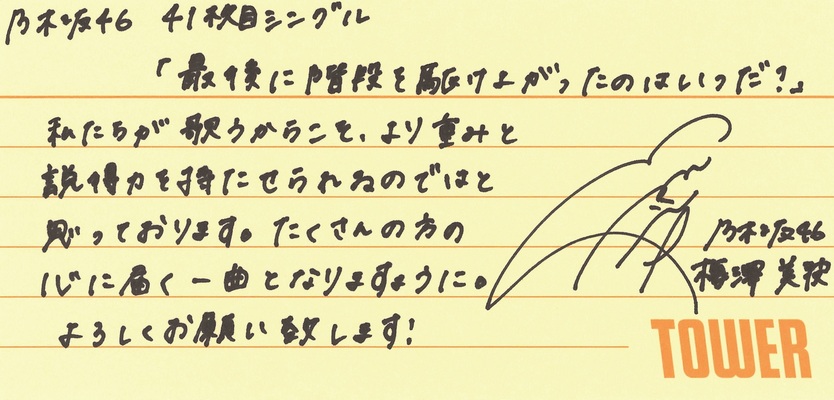 乃木坂46 41枚目シングル
「最後に階段を駆け上がったのはいつだ?」
私たちが歌うからこそ、より重みと
説得力を持たせられるのではと
思っております。たくさんの方の
心に届く一曲となりますように。
よろしくお願い致します!
乃木坂46
梅澤 美波
TOWER